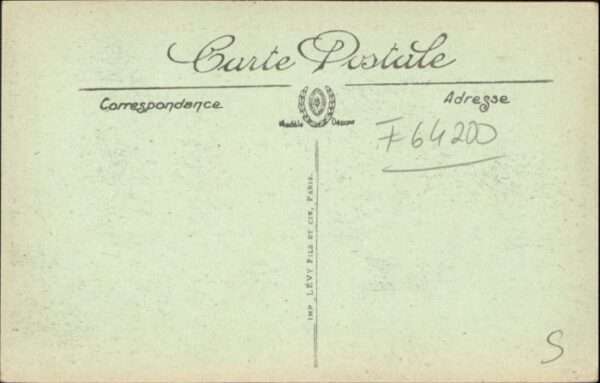 Carte Postale
Correspondance
Adresse
Modèle Déposé
F64200
IMP. LÉVY FILS ET CIE, PARIS.
S